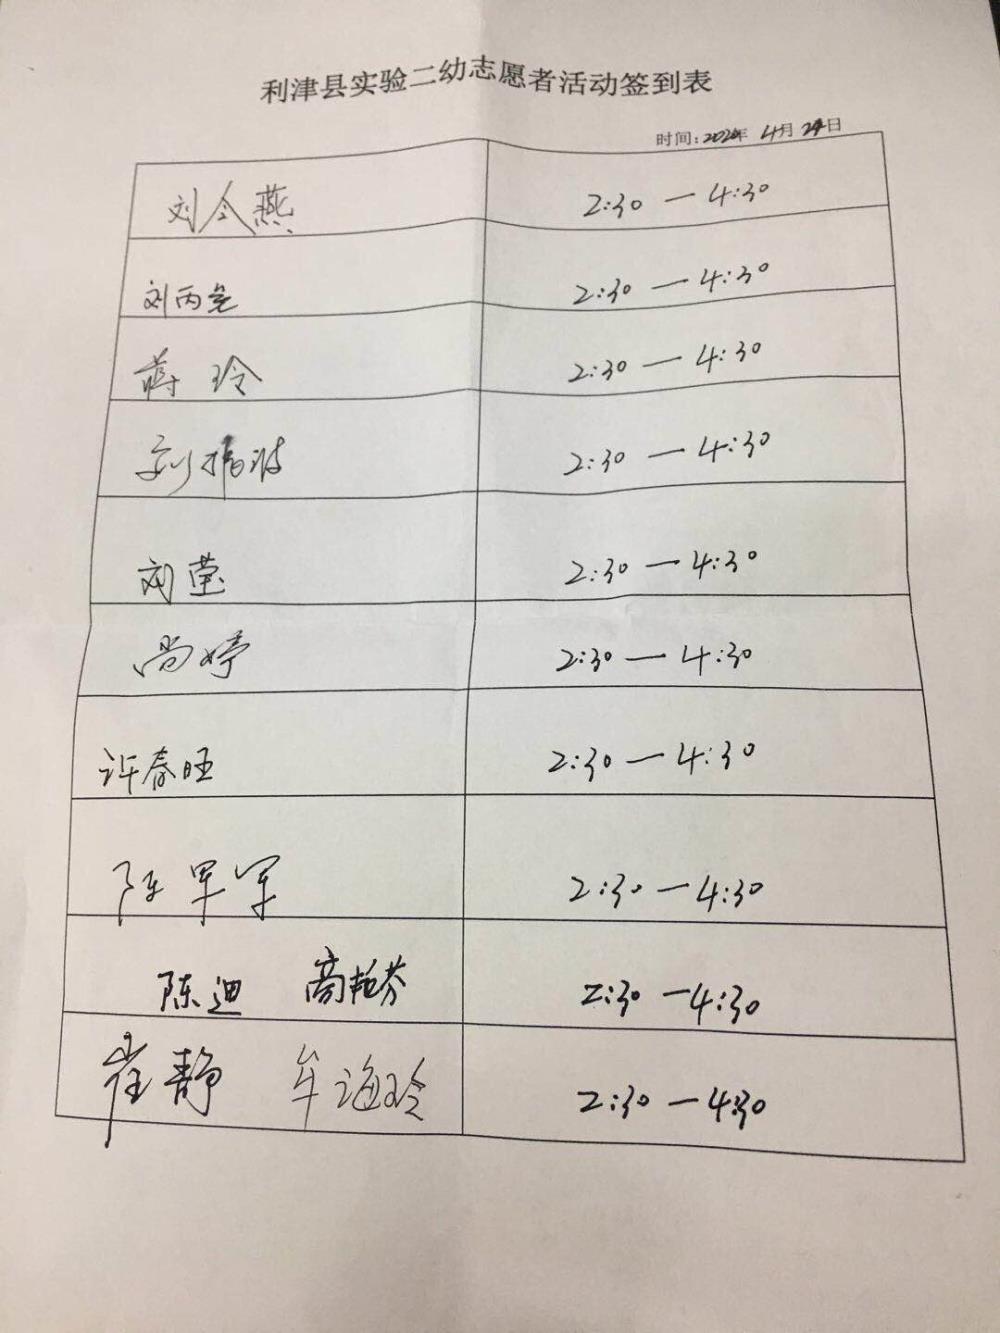 利津县实验二幼志愿者活动签到表
时间:2020年 4月24日
刘令燕 2:30 — 4:30
刘丙尧 2:30 — 4:30
蒋玲 2:30 — 4:30
2:30 — 4:30
刘莹 2:30 — 4:30
尚婷 2:30 — 4:30
许春旺 2:30 — 4:30
陈军军 2:30 — 4:30
陈迪 高艳芬 2:30 — 4:30
崔静 牟海玲 2:30 — 4:30